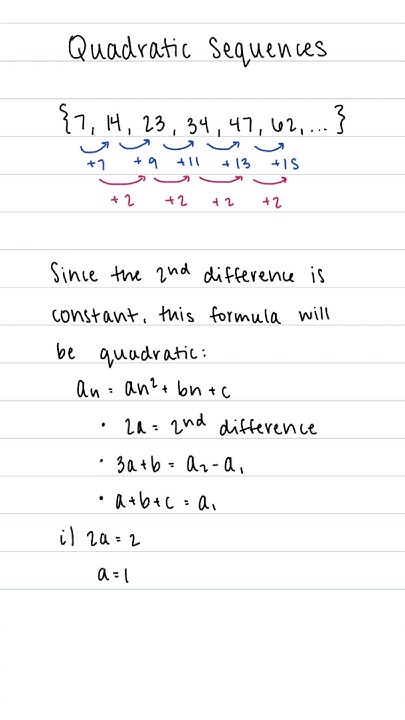 Quadratic Sequences
{7, 14, 23, 34, 47, 62, ... }
+7 +9 +11 +13 +15
+2 +2 +2 +2
Since the 2nd difference is
constant, this formula will
be quadratic:
an = an² + bn + c
• 2a = 2nd difference
• 3a+b = a₂ - a₁
• a+b+c = a₁
i) 2a = 2
a = 1